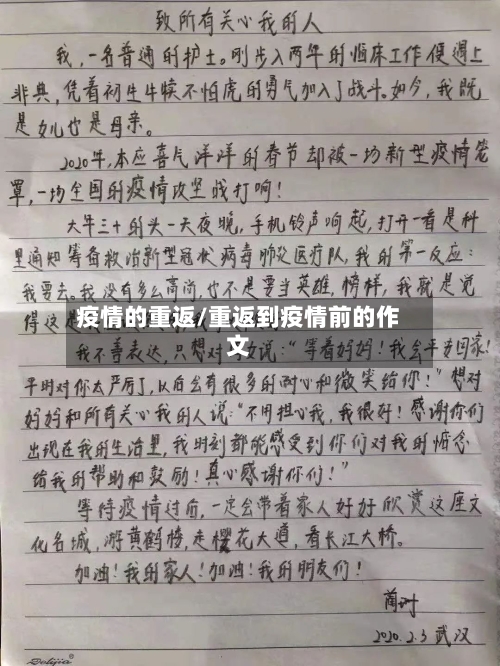 致所有关心我的人
我,一名普通的护士。刚步入两年的临床工作便遇上
非典,凭着初生牛犊不怕虎的勇气加入了战斗。如今,我既
是女儿也是母亲。
2020年,本应喜气洋洋的春节却被一场新型疫情笼
罩,一场全国的疫情攻坚战打响!
大年三十的头一天夜晚,手机铃声响起,打开一看是科
里通知筹备救治新型冠状病毒肺炎医疗队,我的第一反应:
我要去。我没有多么高尚,也不是要当英雄,榜样,我就是觉
得这是
疫情的重返/重返到疫情前的作
文
我不善表达,只想对
说:“等着妈妈!我会平安回家!
平时对你太严厉了,以后会有很多的耐心和微笑给你!”想对
妈妈和所有关心我的人说:“不用担心我,我很好!感谢你们
出现在我的生活里,我时刻都能感受到你们对我的惦念
给我的帮助和鼓励!真心感谢你们!”
等待疫情过后,一定会带着家人好好欣赏这座文
化名城,游黄鹤楼,走樱花大道,看长江大桥。
加油!我的家人!加油!我的朋友们!
2020.2.3 武汉